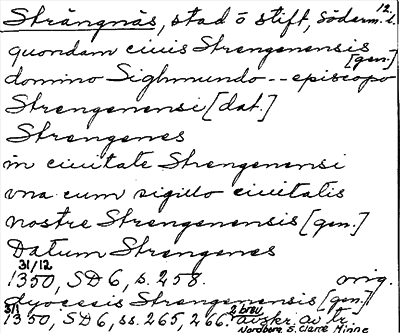 12.
Strängnäs, stad o stift, Söderm. l.
quondam ciuis Strengenensis [gen.]
domino Sighmundo -- episcopo
Strengenensi [dat.]
Strengenes
in ciuitate Strengenensi
vna cum sigillo ciuitatis
nostre Strengenensis [gen.]
Datum Strengenes
31/12
1350, SD 6, s. 258. orig.
dyocesis Strengenensis [gen.]
3/1 1350, SD 6, ss. 265, 266. 2 brev avskr. av
Nordberg S. Claræ Minne